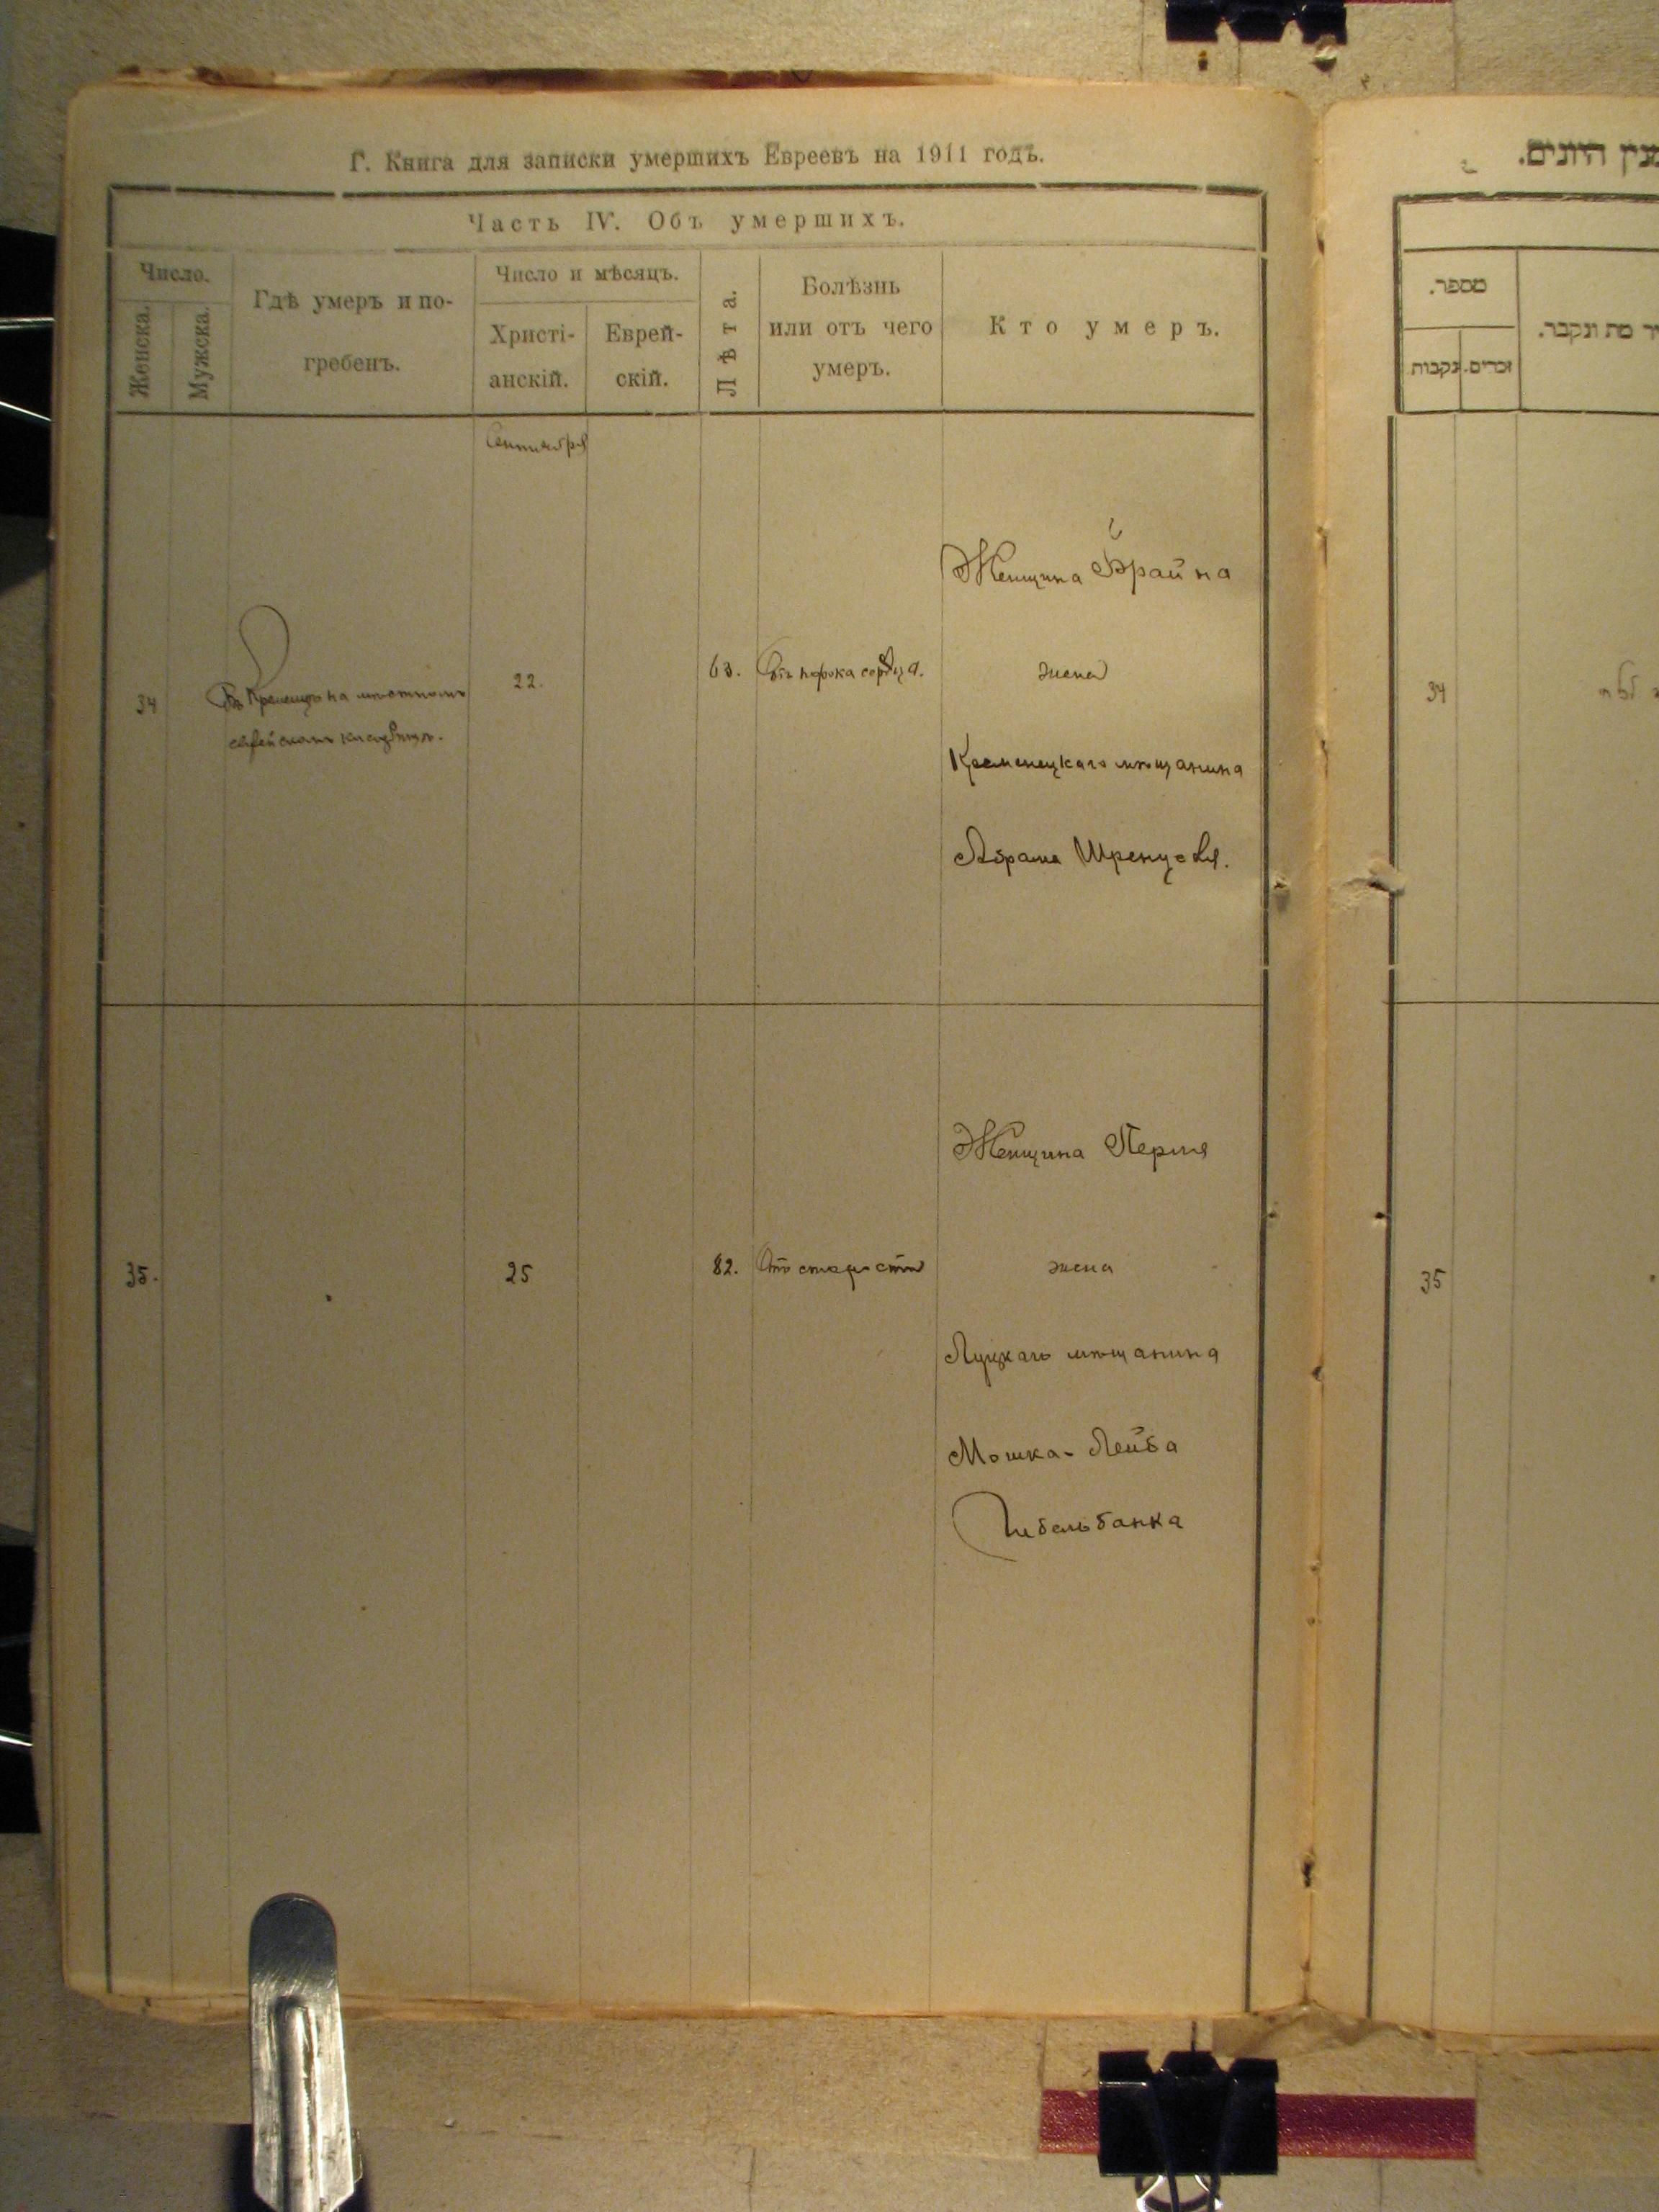 Г. Книга для записки умершихъ Евреевъ на 1911 годъ.
Часть IV. Объ умершихъ.
Число.
Женска.
Мужска.
Гдѣ умеръ и по-
гребенъ.
Число и мѣсяцъ.
Христі-
анскій.
Еврей-
скій.
Лѣта.
Болѣзнь
или отъ чего
умеръ.
Кто умеръ.
Сентября
34
Въ Кременцѣ на мѣстномъ
еврейскомъ кладбищѣ.
22.
63.
Отъ порока сердца.
Женщина Брайна
жена
Кременецкаго мѣщанина
Абрама Шренцеля.
35.
25
82.
Отъ старости
Женщина Перля
жена
Луцкаго мѣщанина
Мошка-Лейба
מספר.
זכרים.
נקבות.
מת ונקבר.
34
35